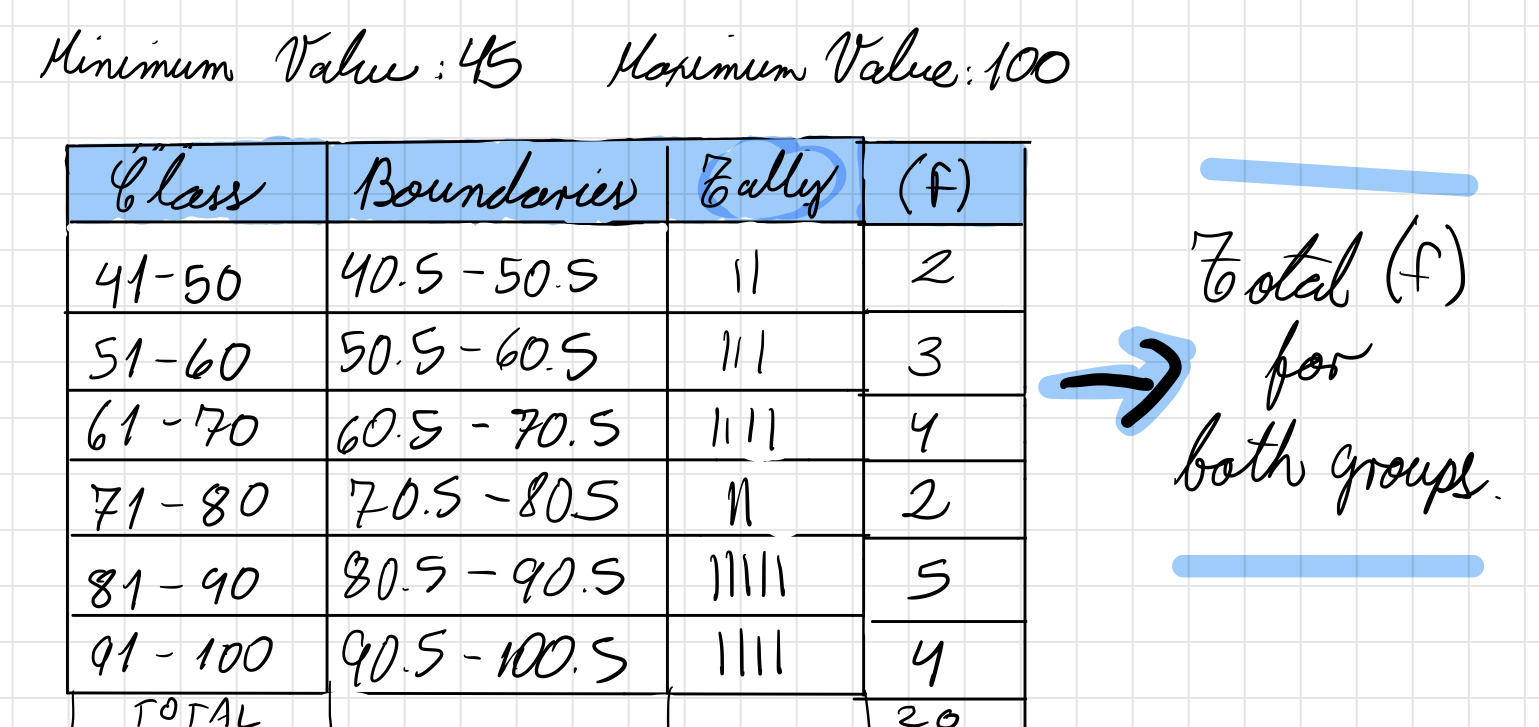 Minimum Value: 45 Maximum Value: 100
Class Boundaries Tally (f)
41-50 40.5-50.5 || 2
51-60 50.5-60.5 ||| 3
61-70 60.5-70.5 |||| 4
71-80 70.5-80.5 || 2
81-90 80.5-90.5 ||||| 5
91-100 90.5-100.5 |||| 4
TOTAL 20
Total (f)
for
both groups.